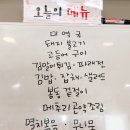 오늘의 메뉴
미역국
돼지불고기
고등어구이
김말이튀김·파래전
김밥·잡채·샐러드
봉동겉절이
메추리알약조림
멸치볶음·무나물